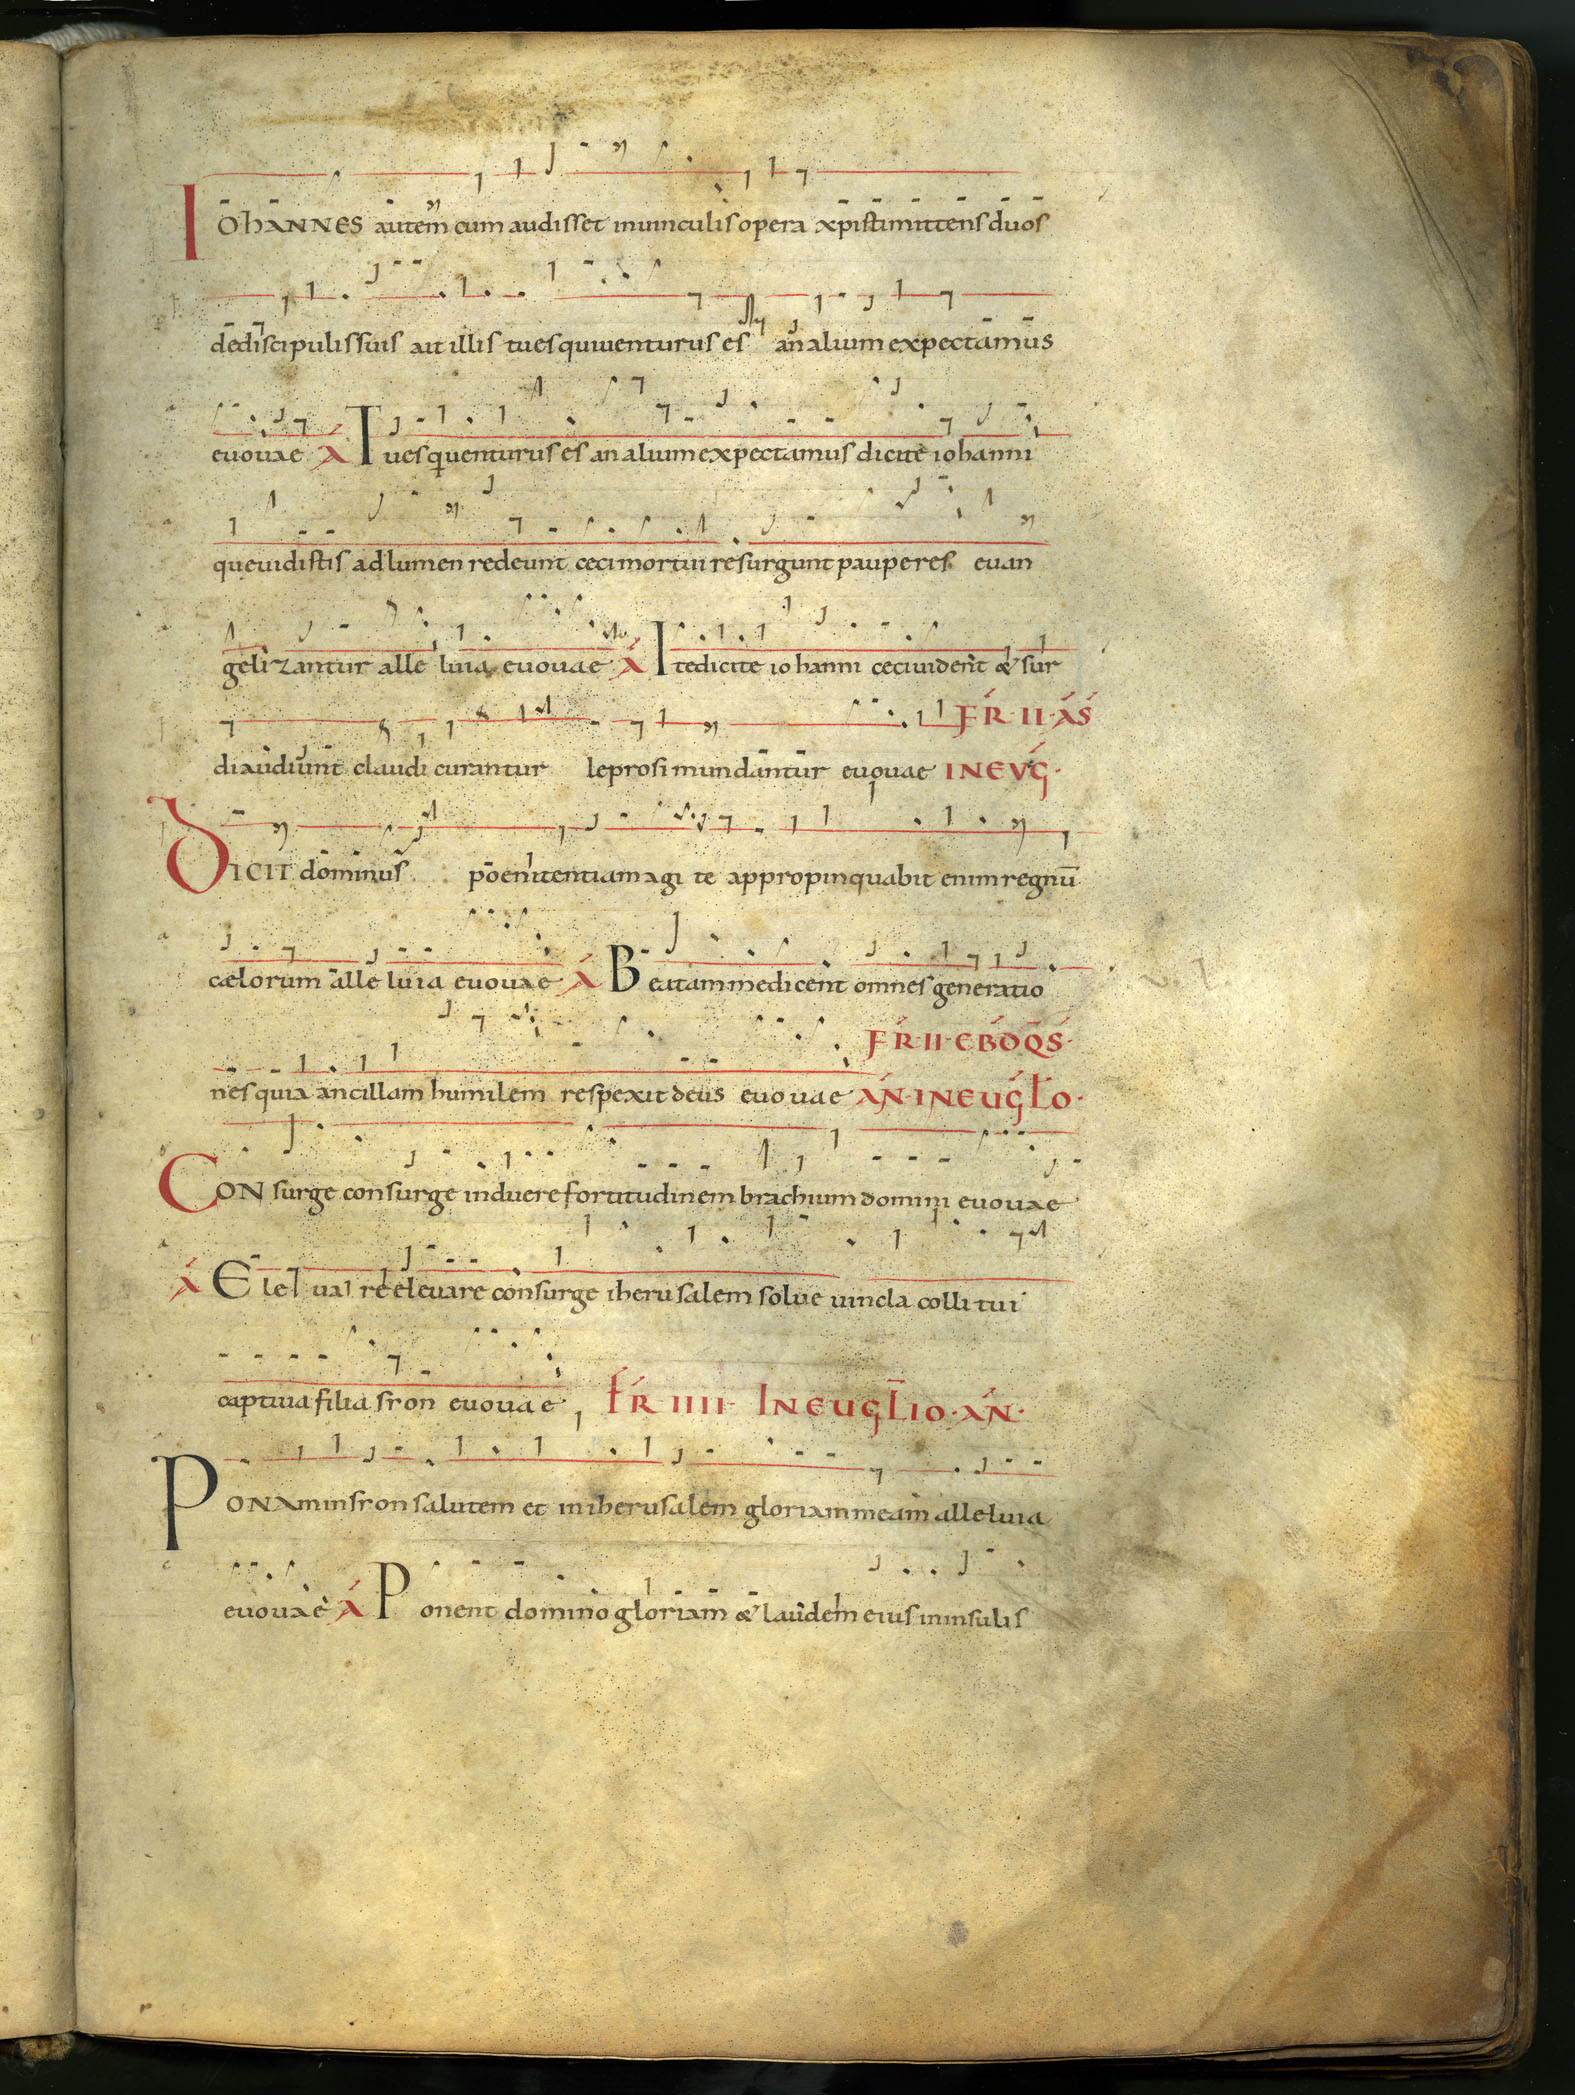 IOhANNES autem cum audisset inuinculis opera xpisti mittens duos
dediscipulis suis ait illis tues quiuenturus es an alium expectamus
euouae A Tues quenturus es an alium expectamus dicite iohanni
que uidistis ad lumen redeunt ceci mortui resurgunt pauperes euan
gelizantur alle luia euouae A Ite dicite iohanni ceci uident & sur
di audiunt claudi curantur leprosi mundantur euouae FR·II·AS
INEVG·
DICIT dominus poenitentiam agi te appropinquabit enim regnū
cælorum alle luia euouae A Beatam me dicent omnes generatio
FR·II·EBDQS·
nes quia ancillam humilem respexit deus euouae AN·INEUGLO·
CON surge consurge induere fortitudinem brachium domini euouae
A Ele uare eleuare consurge iherusalem solue uincla colli tui
captiua filia sion euouae FR IIII· INEUGLIO·AN·
PONAm in sion salutem et in iherusalem gloriam meam alleluia
euouae A Ponent domino gloriam & laudem eius in insulis